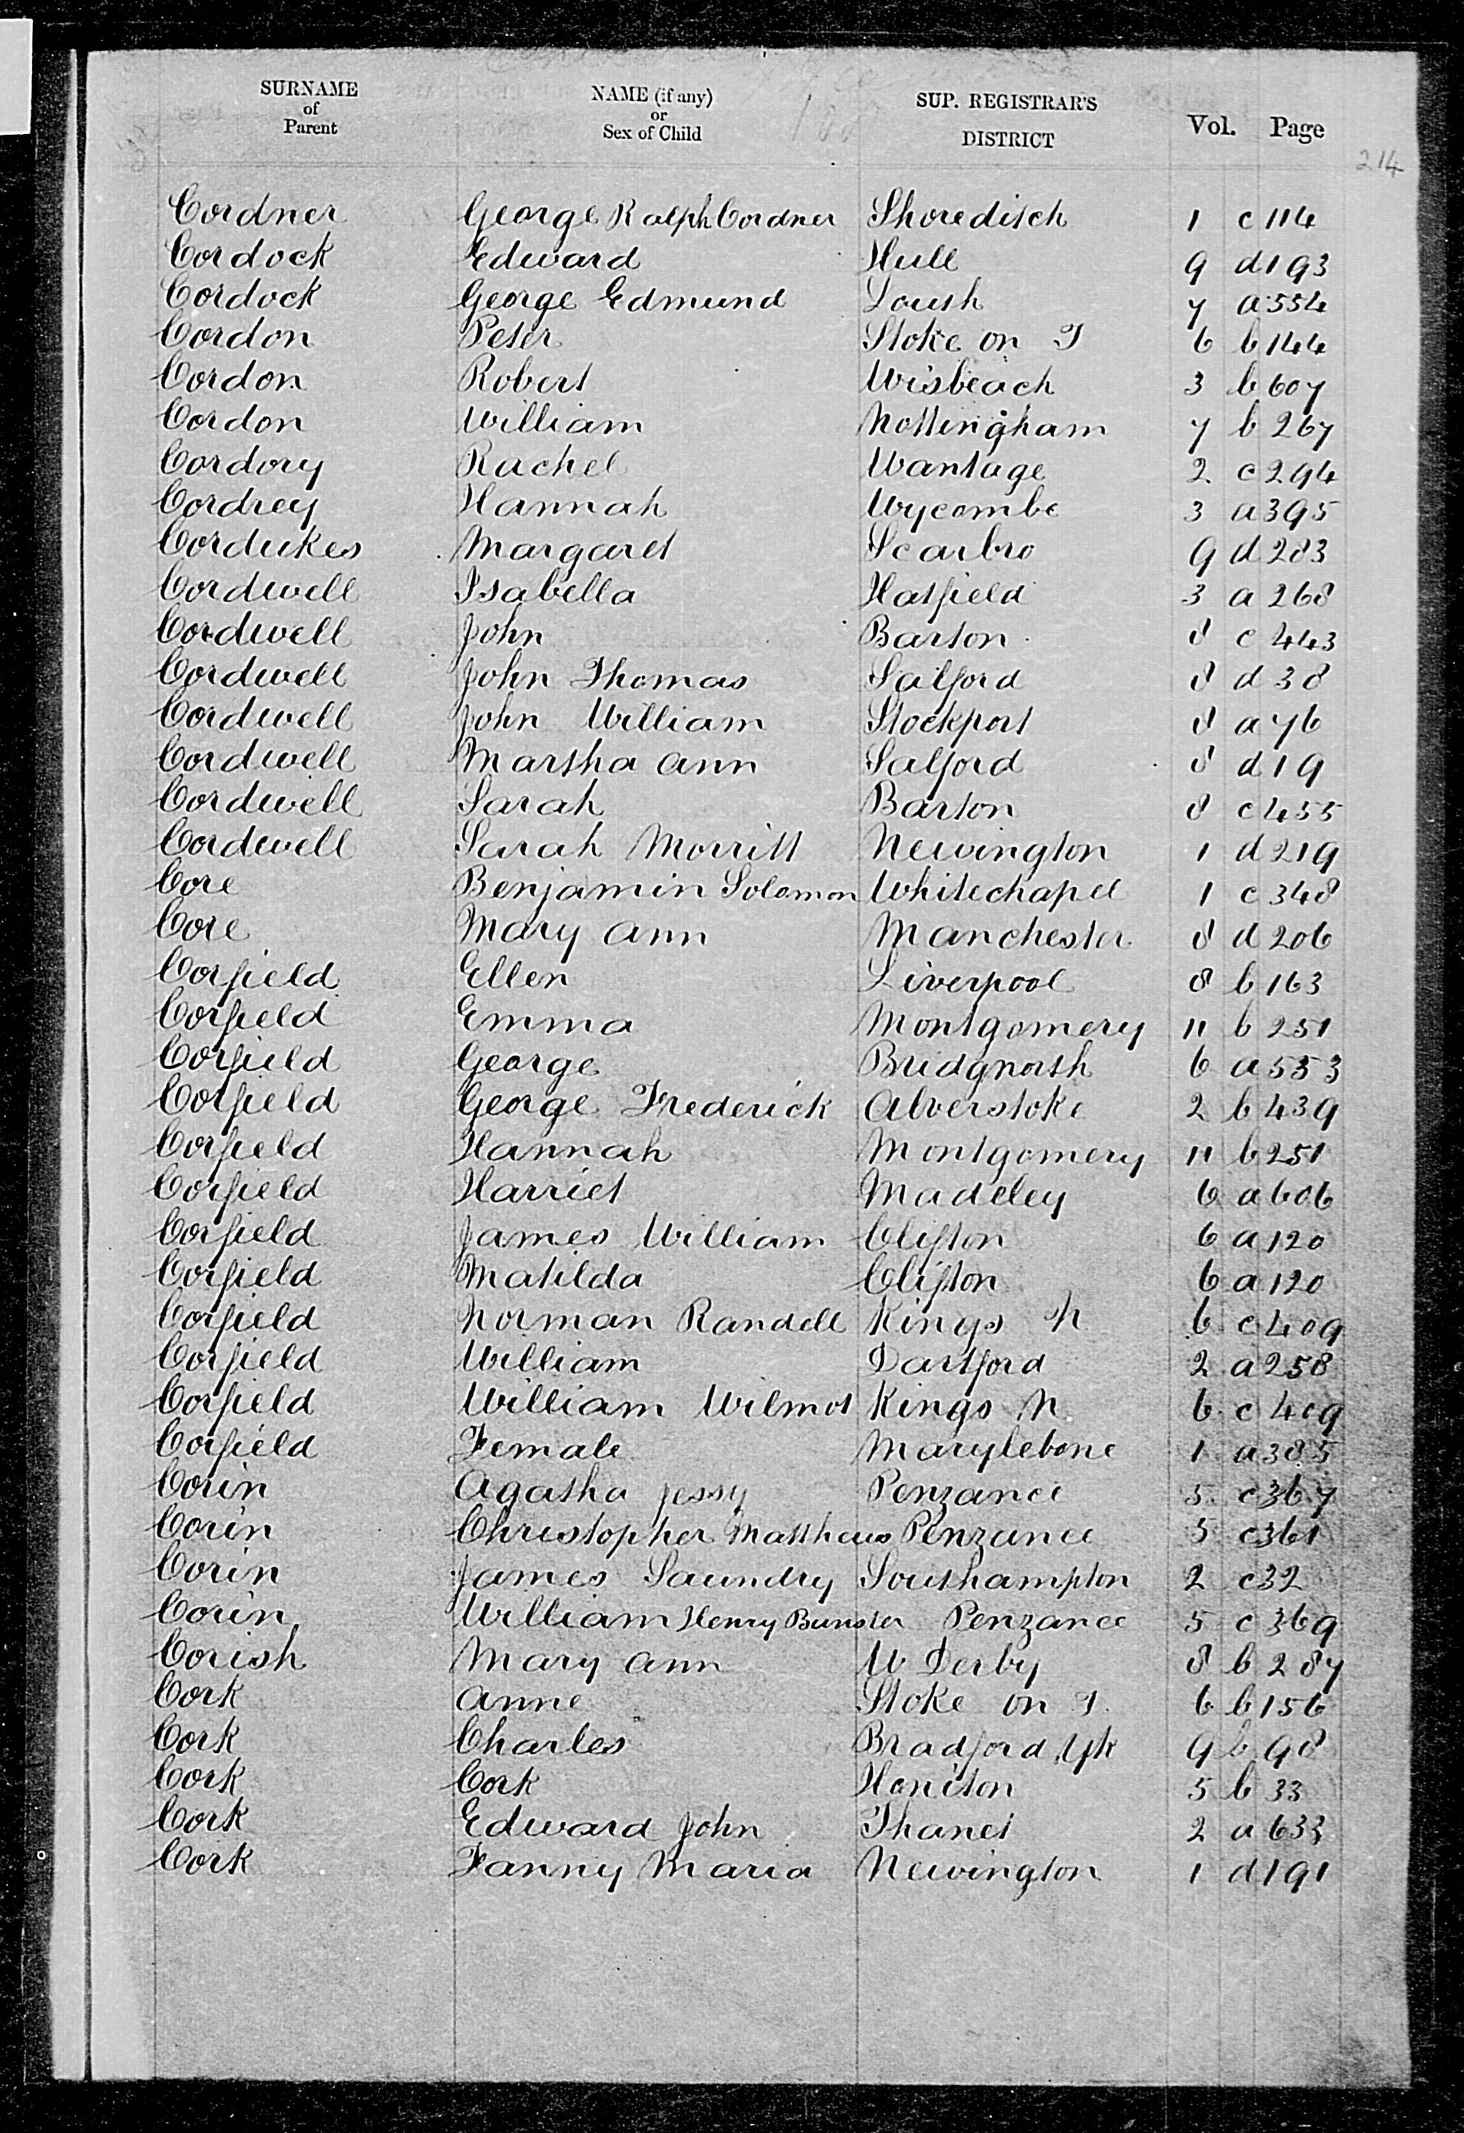 SURNAME of Parent NAME (if any) or Sex of Child SUP. REGISTRAR'S DISTRICT Vol. Page
214
Cordner George Ralph Cordner Shoreditch 1 c 114
Cordock Edward Hull 9 d 193
Cordock George Edmund Louth 7 a 554
Cordon Peter Stoke on T 6 b 144
Cordon Robert Wisbeach 3 b 607
Cordon William Nottingham 7 b 267
Cordory Rachel Wantage 2 c 294
Cordrey Hannah Wycombe 3 a 395
Cordukes Margaret Scarbro 9 d 283
Cordwell Isabella Hatfield 3 a 268
Cordwell John Barton 8 c 443
Cordwell John Thomas Salford 8 d 38
Cordwell John William Stockport 8 a 76
Cordwell Martha Ann Salford 8 d 19
Cordwell Sarah Barton 8 c 455
Cordwell Sarah Morritt Newington 1 d 219
Core Benjamin Solomon Whitechapel 1 c 348
Core Mary Ann Manchester 8 d 206
Corfield Ellen Liverpool 8 b 163
Corfield Emma Montgomery 11 b 251
Corfield George Bridgnorth 6 a 553
Corfield George Frederick Alverstoke 2 b 439
Corfield Hannah Montgomery 11 b 251
Corfield Harriet Madeley 6 a 606
Corfield James William Clifton 6 a 120
Corfield Matilda Clifton 6 a 120
Corfield Norman Randell Kings N 6 c 409
Corfield William Dartford 2 a 258
Corfield William Wilmot Kings N. 6 c 409
Corfield Female Marylebone 1 a 385
Corin Agatha Jessy Penzance 5 c 367
Corin Christopher Matthews Penzance 5 c 361
Corin James Saundry Southampton 2 c 32
Corin William Henry Bunster Penzance 5 c 369
Corish Mary Ann W Derby 8 b 287
Cork Anne Stoke on T. 6 b 156
Cork Charles Bradford, Yk 9 b 98
Cork Cork Honiton 5 b 33
Cork Edward John Thanet 2 a 633
Cork Fanny Maria Newington 1 d 191